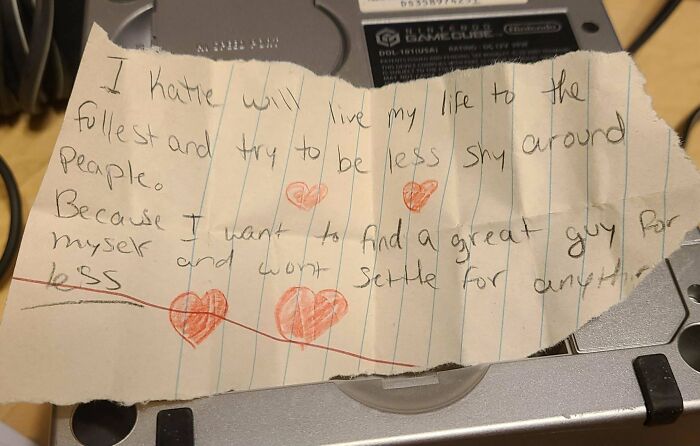 DS358974251
NINTENDO
GAMECUBE
Nintendo
DOL-101(USA) RATING: DC12V
I Katie will live my life to the
fullest and try to be less shy around
peaple.
Because I want to find a great guy for
myself and wont settle for anythin
less